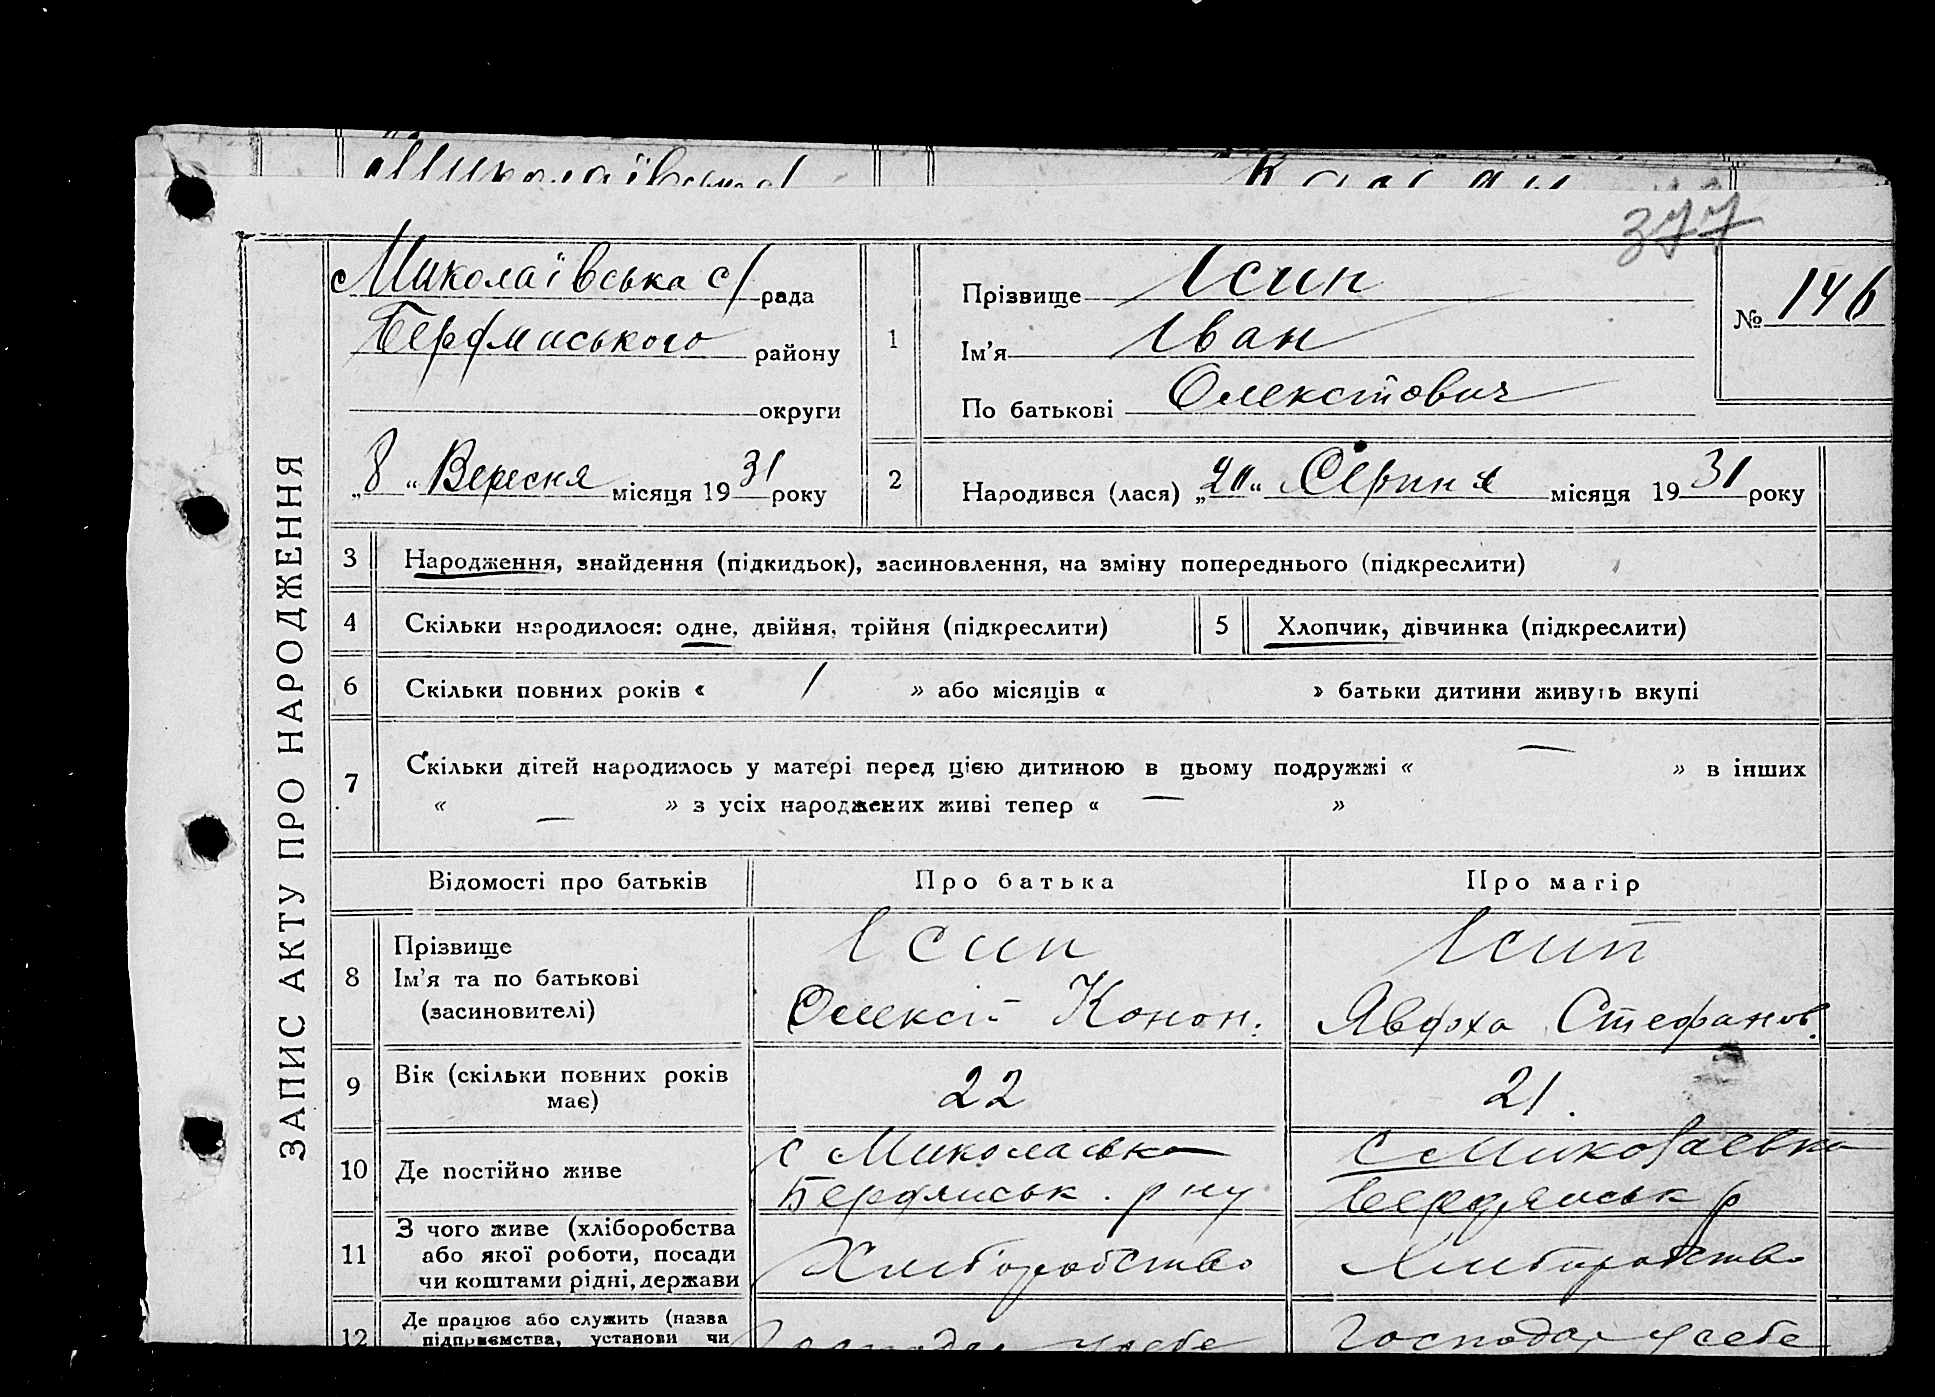 Миколаївська с/
377
ЗАПИС АКТУ ПРО НАРОДЖЕННЯ
Миколаївська с/ рада
Бердянського району
округи
„8“ Вересня місяця 1931 року
1
Прізвище Ісип
Ім'я Іван
По батькові Олексійович
№ 146
2
Народився (лася) „20“ Серпня місяця 1931 року
3 Народження, знайдення (підкидьок), засиновлення, на зміну попереднього (підкреслити)
4 Скільки народилося: одне, двійня, трійня (підкреслити) 5 Хлопчик, дівчинка (підкреслити)
6 Скільки повних років « 1 » або місяців « » батьки дитини живуть вкупі
7 Скільки дітей народилось у матері перед цією дитиною в цьому подружжі « — » в інших
« — » з усіх народжених живі тепер « — »
Відомості про батьків Про батька Про матір
8 Прізвище Ісип Ісип
Ім'я та по батькові Олексій Конон. Явдоха Стефанов.
(засиновителі)
9 Вік (скільки повних років має) 22 21.
10 Де постійно живе с Миколаївка с Миколаевка
Бердянськ. р ну Бердянськ р
11 З чого живе (хліборобства Хліборобство Хліборобство
або якої роботи, посади
чи коштами рідні, держави
12 Де працює або служить (назва Господар у себе Господар у себе
підприємства, установи чи